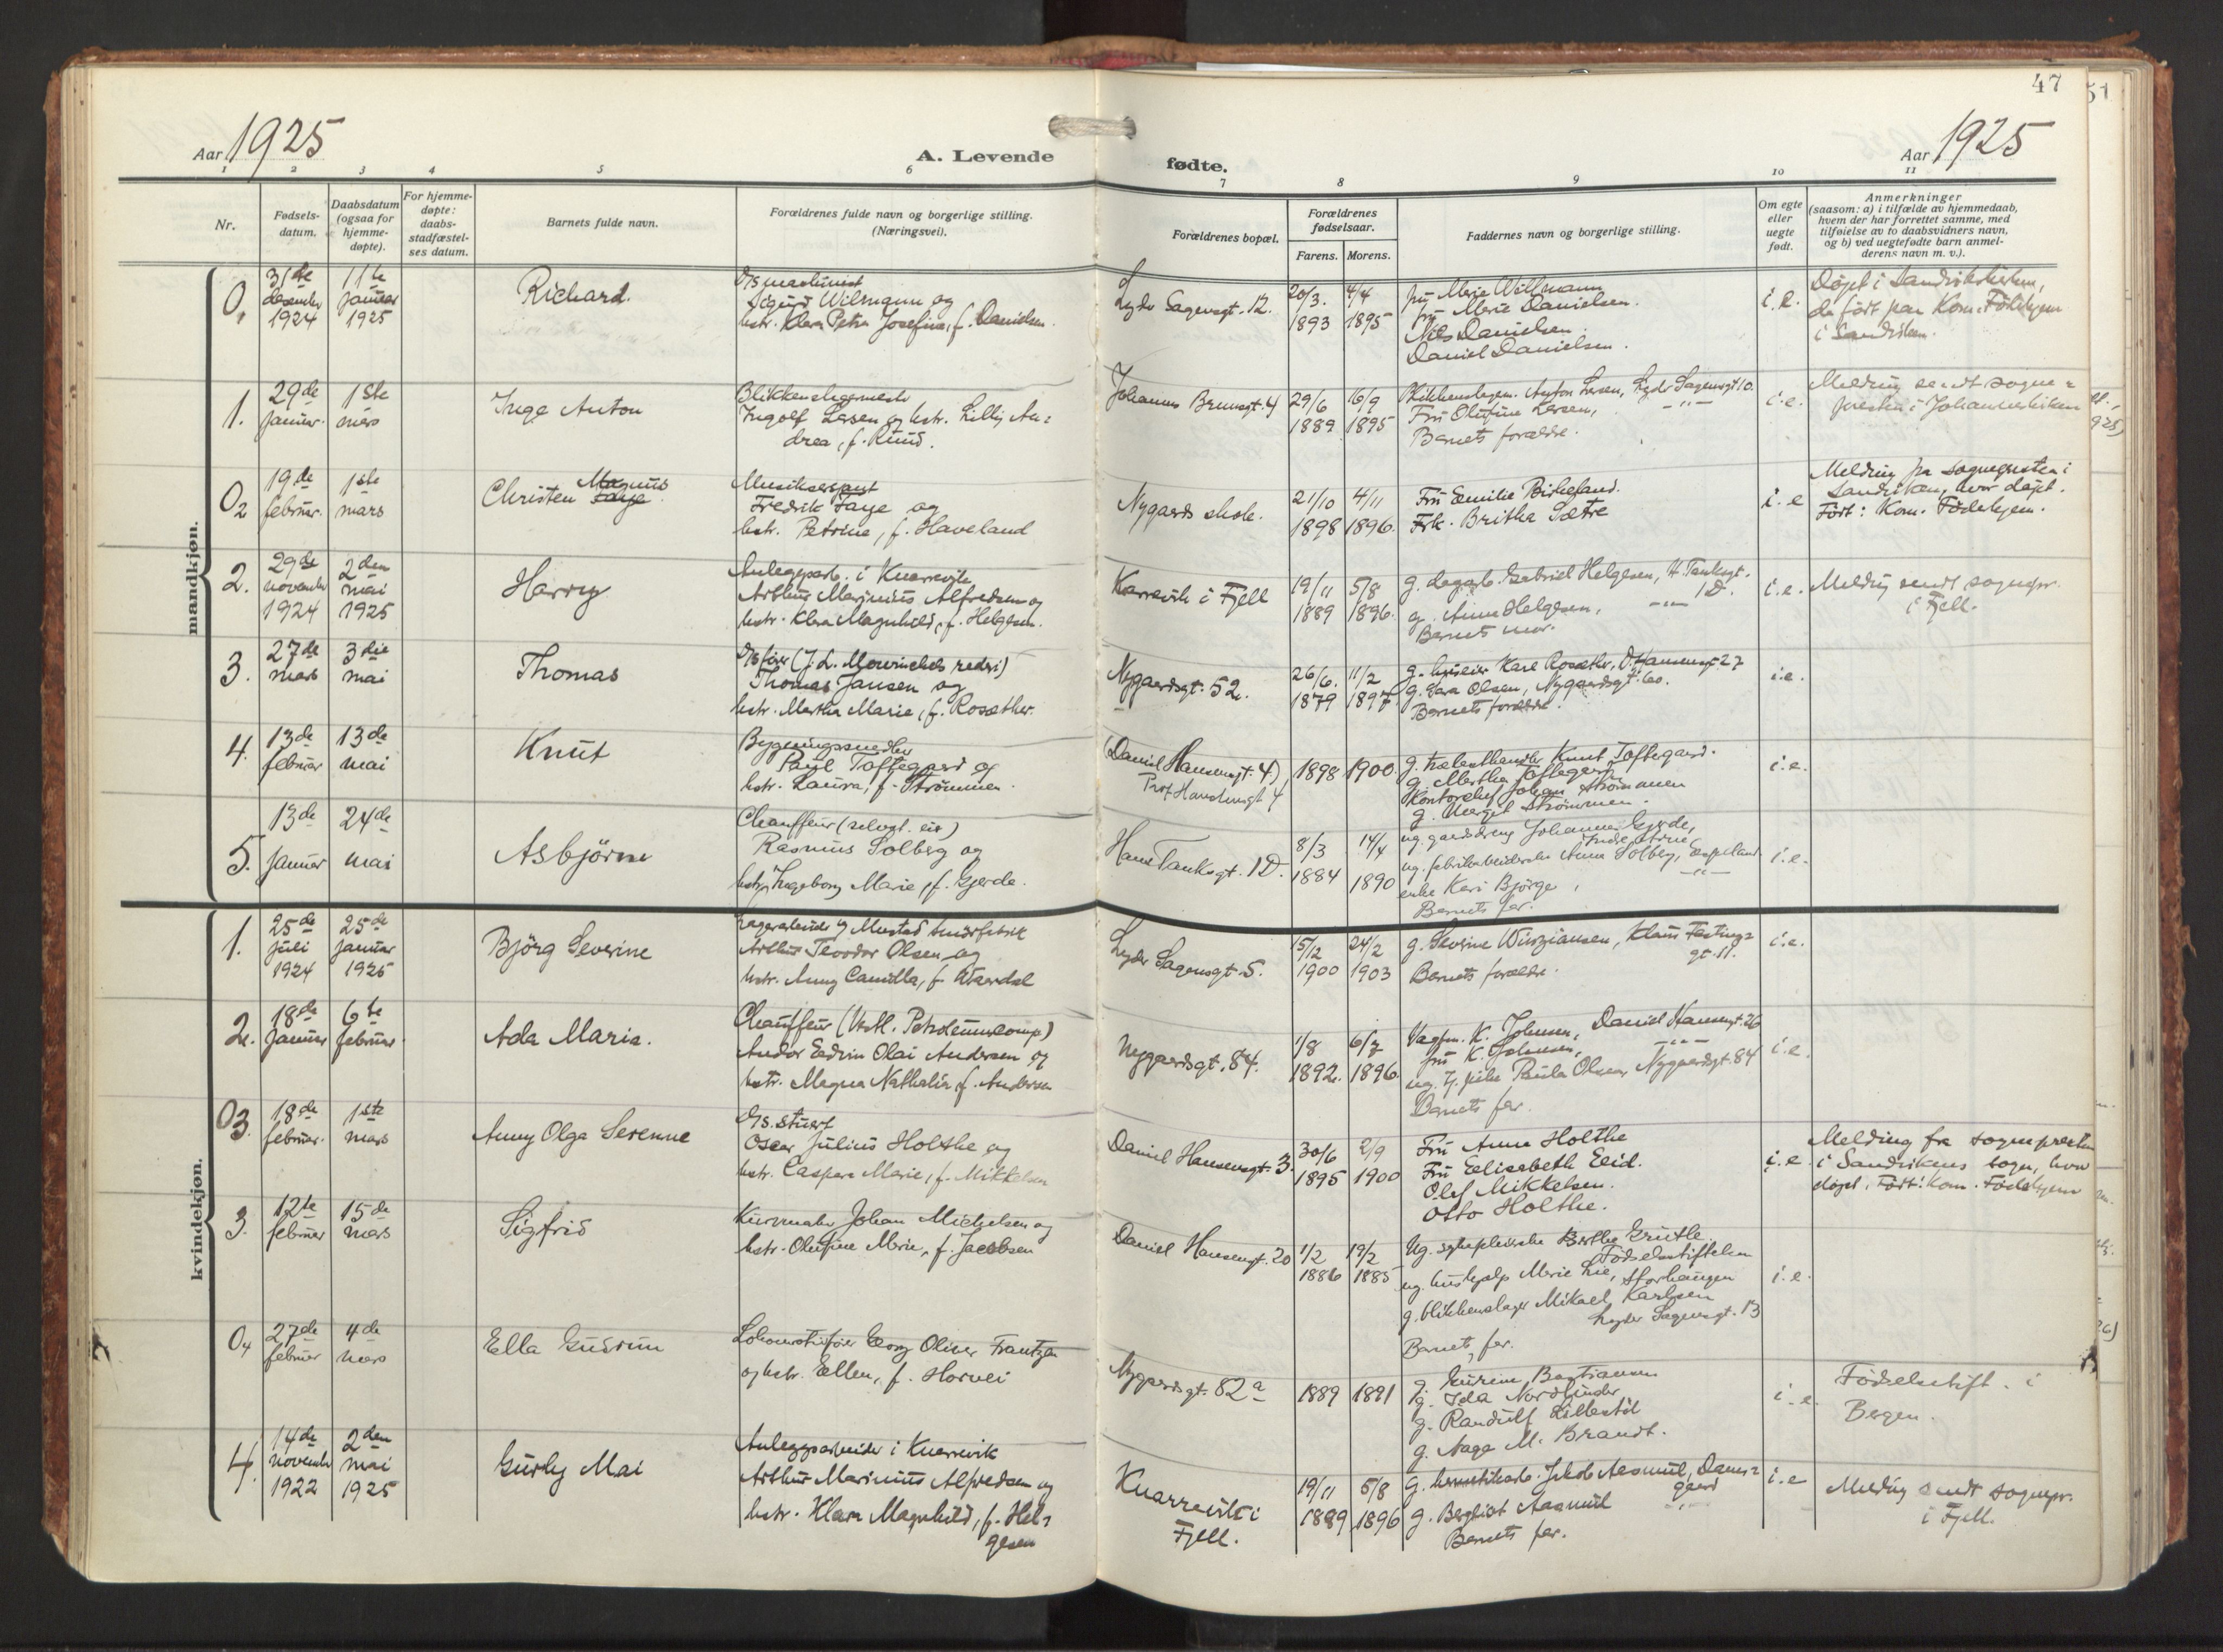 47
Aar 1925
A. Levende
fødte.
Aar 1925
1 2 3 4 5 6 7 8 9 10 11
Nr.
Fødsels-
datum.
Daabsdatum
(ogsaa for
hjemme-
døpte).
For hjemme-
døpte:
daabs-
stadfæstel-
ses datum.
Barnets fulde navn.
Forældrenes fulde navn og borgerlige stilling.
(Næringsvei).
Forældrenes bopæl.
Forældrenes
fødselsaar.
Farens. Morens.
Faddernes navn og borgerlige stilling.
Om egte
eller
uegte
født.
Anmerkninger
(saasom: a) i tilfælde av hjemmedaab,
hvem der har forrettet samme, med
tilføielse av to daabsvidners navn,
og b) ved uegtefødte barn anmel-
derens navn m. v.).
mandkjøn.
0,
31te
desember
1924
11te
januar
1925
Richard.
D/s maskinist
Sigurd Wilmann og
hstr. Klara Petra Josefine, f. Danielsen.
Lyder Sagensgt. 12.
20/3. 4/4
1893 1895
fru Marie Willmann
fru Marie Danielsen.
Nils Danielsen.
Daniel Danielsen.
i. e.
Døpt i Sandvikskirken,
da født paa Kom. Fødehjem
i Sandviken.
1.
29de
januar.
1ste
mars
Inge Anton
Blikkenslagermester
Ingolf Larsen og hstr. Lilly An=
drea, f. Rund.
Johannes Brunsgt. 4
29/6 16/9
1889 1895
Blikkenslagerm. Anton Larsen, Lyder Sagensgt 10.
Fru Olufine Larsen, -"-
Barnets forældre.
i. e.
Melding sendt sogne=
presten i Johanneskirken
O2
19de
februar.
1ste
mars
Christen Magnus
Faye.
Musikersergt
Fredrik Faye og
hstr. Petrine, f. Haveland
Nygaards skole.
21/10 4/11
1898 1896.
Fru Emilie Birkeland.
Frk. Britha Sætre
i. e
Melding fra sognepresten i
Sandviken, hvor døpt.
Født: Kom. Fødehjem.
2.
29de
november
1924
2den
mai
1925
Harry
Anlegsarb. i Knarrevik
Arthur Marinius Alfredsen og
hstr. Klara Magnhild, f. Helgesen.
Knarrevik i Fjell
19/11 5/8
1889 1896.
g. lagarb. Gabriel Helgesen, H. Tanksgt.
1D.
g. Anna Helgesen, -"-
Barnets mor.
i. e.
Melding sendt sognepr.
i Fjell.
3.
27de
mars
3die
mai
Thomas
D/s fører (J. L. Mowinckels rederi)
Thomas Jansen og
hstr. Martha Marie, f. Rosæther.
Nygaardsgt. 52.
26/6. 11/2
1879 1897
g. Karl Rosæther, D. Hansensgt. 27
g. Sara Olsen, Nygaardsgt. 60.
Barnets forældre.
i. e.
4.
13de
februar
13de
mai
Knut
Bygningssnedker
Paul Toftegaard og
hstr. Laura, f. Strömmen.
(Daniel Hansensgt. 4)
Prof. Hansteensgt. 4
1898 1900.
g. trælasthandler Knut Toftegaard.
g. Martha Toftegaard
Kontorchef Johan Strömmen
g. Marget Strömmen.
i. e.
5.
13de
januar
24de
mai
Asbjörn
Chauffeur (selvst. eier)
Rasmus Solberg og
hstr. Ingeborg Marie, f. Gjerde.
Hans Tanksgt. 1D.
8/3 14/4
1884 1890
ug. gaardsdreng Johannes Gjerde,
Indre Arne
ug. fabrikarbeiderske Anna Solberg, Espeland
enke Kari Bjørge, -"-
Barnets far.
i. e.
kvindekjøn.
1.
25de
juli
1924
25de
januar
1925
Björg Severine
Lagerarbeider Mustad
Arthur Teodor Olsen og
hstr. Anny Camilla, f. Waardal
Lyder Sagensgt. 5.
5/12 24/2
1900 1903
g. Severine Klaus Festings=
gt. 11.
Barnets forældre.
i. e.
2.
18de
januar
6te
februar
Ada Marie.
Chauffeur (Vestl. Petroleumscomp.)
Andor Edvin Olai Andersen og
hstr. Magna Nathalia, f. Andersen
Nygaardsgt. 84.
1/8 6/7
1892. 1896.
Vagtm. K. Johnsen, Daniel Hansensgt. 26
fru K. Johnsen, -"-
ug. tj. pike Paula Olsen Nygaardsgt. 84
Barnets far.
i. e.
O3
18de
februar.
1ste
mars
Anny Olga Serenne
D/s. stuert
Oscar Julius Holthe og
hstr. Caspara Marie, f. Mikkelsen
Daniel Hansensgt. 3.
30/6 2/9
1895 1900
Fru Anna Holthe
Fru Elisabeth Eid.
Olaf Mikkelsen.
Otto Holthe.
i. e
Melding fra sognepresten
i Sandvikens sogn, hvor
døpt. Født: Kom. Fødehjem
3.
12te
februar
15de
mars
Sigfrid
Kurvmaker Johan Michelsen og
hstr. Olufine Marie, f. Jacobsen
Daniel Hansensgt. 20
1/2 19/2
1886 1885
Ug. sykepleierske Berthe Grutle
Fødselsstiftelsen
ug. hushjelp Marie Lie, Storhaugen
g. blikkenslager Mikael Karlsen
Lyder Sagensgt. 13
Barnets far.
i. e.
O4
27de
februar
4de
mars
Ella Gudrun
Lokomotivfører Georg Oliver Frantzen
og hstr. Ellen, f. Horvei
Nygaardsgt. 82a
1889 1891
g. Gurine Bastiansen
g. Ida Nordbinder
g. Randulf Lillestöl
g. Aage M. Brandt.
i. e.
Fødselsstift. i
Bergen.
4.
14de
november
1922
2den
mai
1925
Gurly Mai
Anleggsarbeider i Knarrevik
Arthur Marinius Alfredsen og
hstr. Klara Magnhild, f. Hel=
gesen
Knarrevik i
Fjell.
19/11 5/8
1889 1896
g. Jakob Aasmul, Dams=
gaard
g. Bergliot Aasmul -"-
Barnets far.
i. e
Melding sendt sognepr.
i Fjell.